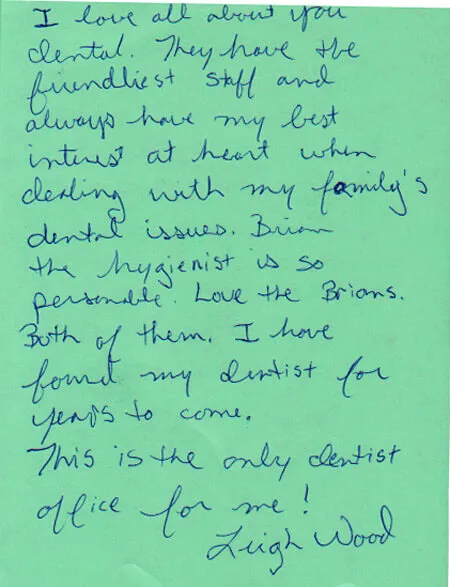 I love all about you
dental. They have the
friendliest staff and
always have my best
interest at heart when
dealing with my family's
dental issues. Brian
the hygienist is so
personable. Love the Brians.
Both of them. I have
found my dentist for
years to come.
This is the only dentist
office for me!
Leigh Wood